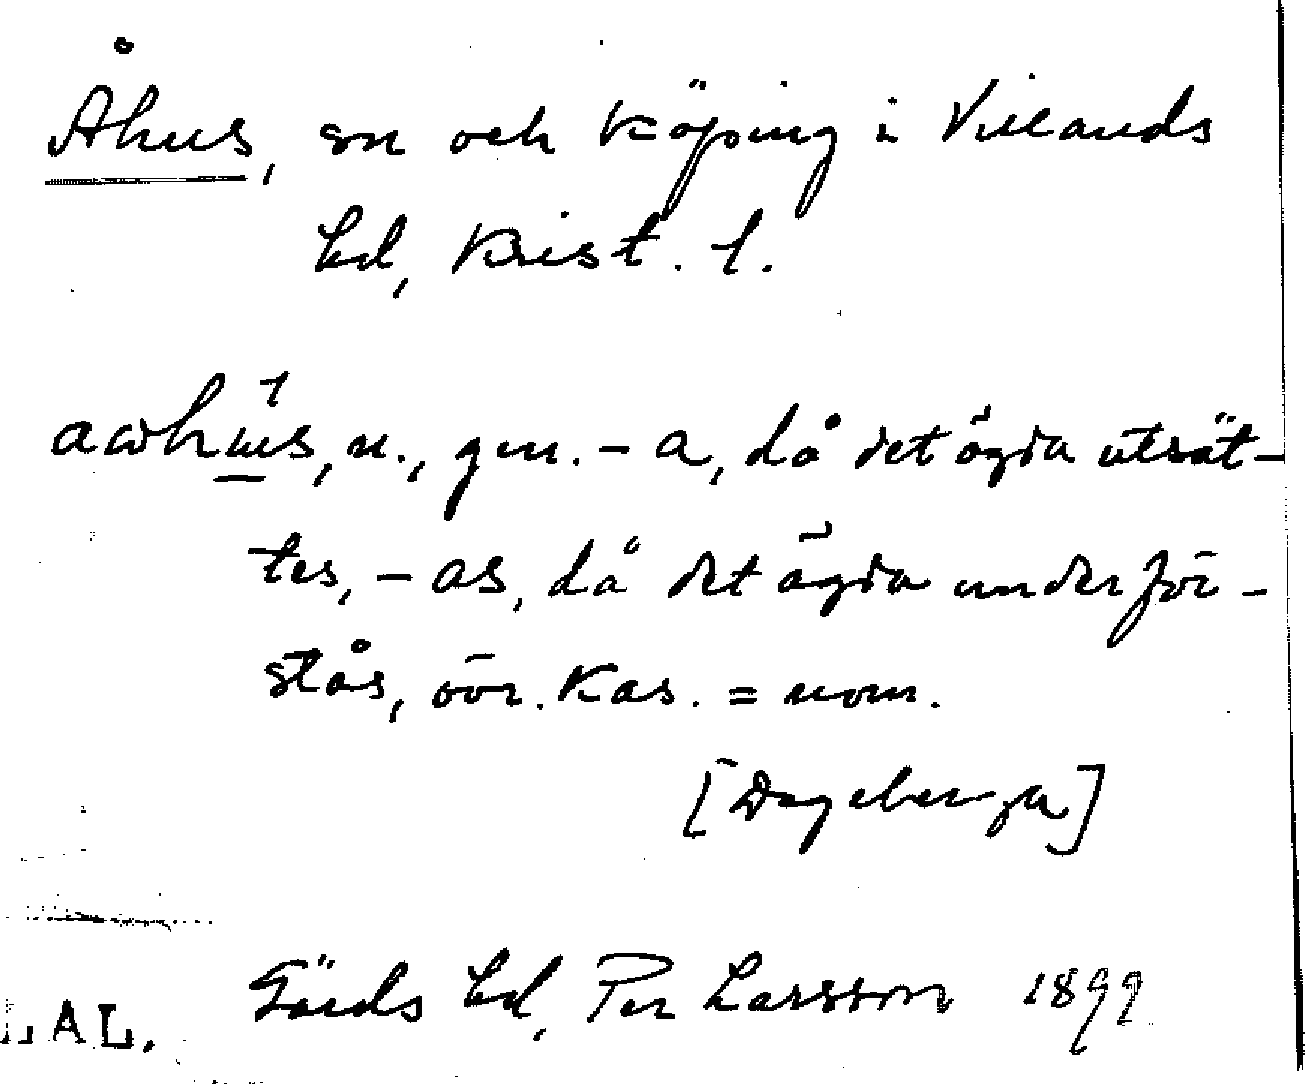 Åhus, sn och köping i Villands
hd, Krist. l.
awhus, n., gen. - a, då det ägda utsät-
tes, - as, då det ägda underför-
stås, övr. kas. = nom.
[Degeberga]
Gärds hd, Per Larsson 1899
LAL.